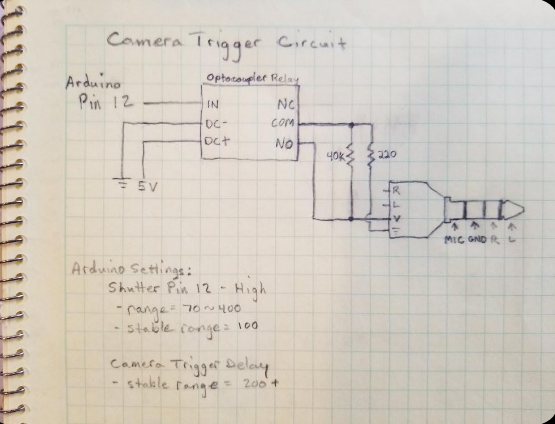 Camera Trigger Circuit
Optocoupler Relay
Arduino
Pin 12
IN
NC
DC-
COM
DC+
NO
40K
220
5V
R
L
V
MIC GND R L
Arduino Settings:
Shutter Pin 12 - High
- range = 70 ~ 400
- stable range = 100
Camera Trigger Delay
- stable range = 200 +